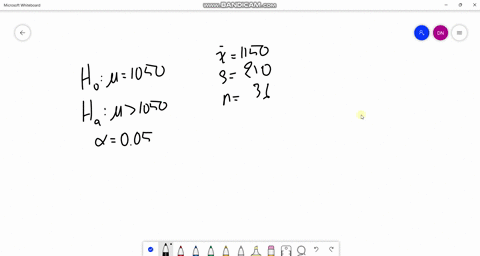 Microsoft Whiteboard
WWW.BANDICAM.COM
DN
H₀: μ = 1050
Hₐ: μ > 1050
α = 0.05
x̄ = 1150
s = 210
n = 36